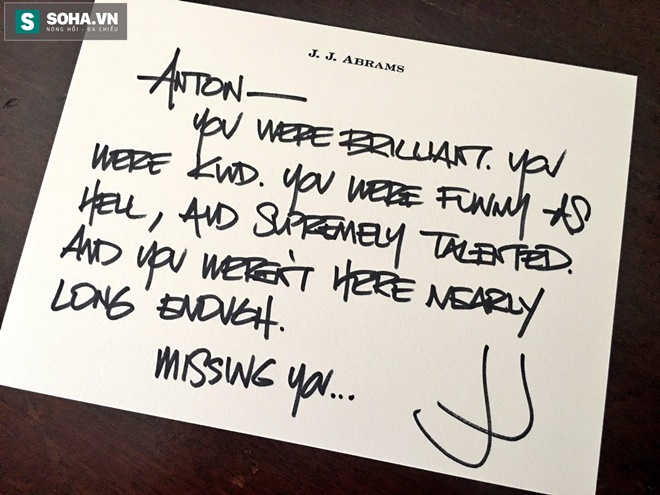 S SOHA.VN
NÓNG HỔI - ĐA CHIỀU
J. J. ABRAMS
ANTON—
YOU WERE BRILLIANT. YOU
WERE KIND. YOU WERE FUNNY AS
HELL, AND SUPREMELY TALENTED.
AND YOU WEREN'T HERE NEARLY
LONG ENOUGH.
MISSING YOU...
JJ